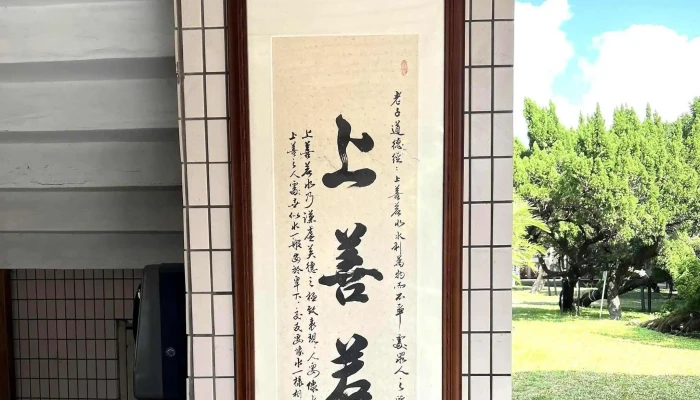 老子道德經：上善若水水利萬物而不爭處眾人之所
上善若
上善若水乃謙虛美德之極致表現人要像水
上善之人處世似水一般安於卑下交友要像水一樣相